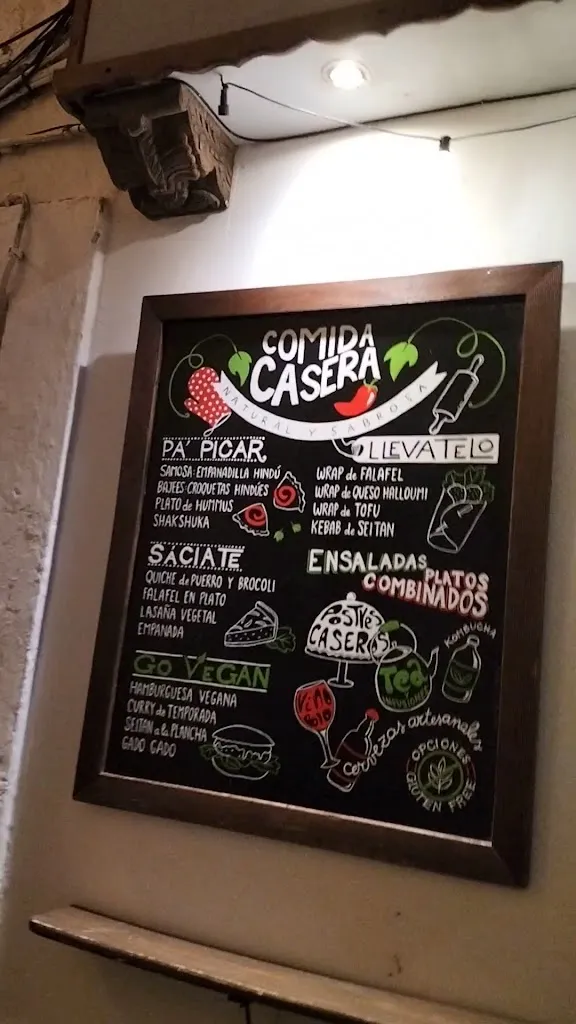 COMIDA
CASERA
NATURAL Y SABROSA
PA' PICAR
SAMOSA: EMPANADILLA HINDÚ
BAJEES: CROQUETAS HINDÚES
PLATO de HUMMUS
SHAKSHUKA
LLEVATELO
WRAP de FALAFEL
WRAP de QUESO HALLOUMI
WRAP de TOFU
KEBAB de SEITAN
SÁCIATE
QUICHE de PUERRO Y BROCOLI
FALAFEL EN PLATO
LASAÑA VEGETAL
EMPANADA
ENSALADAS
PLATOS
COMBINADOS
POSTRES
CASEROS
KOMBUCHA
Tea
INFUSIONES
GO VEGAN
HAMBURGUESA VEGANA
CURRY de TEMPORADA
SEITAN a la PLANCHA
GADO GADO
cervezas artesanales
OPCIONES
GLUTEN FREE